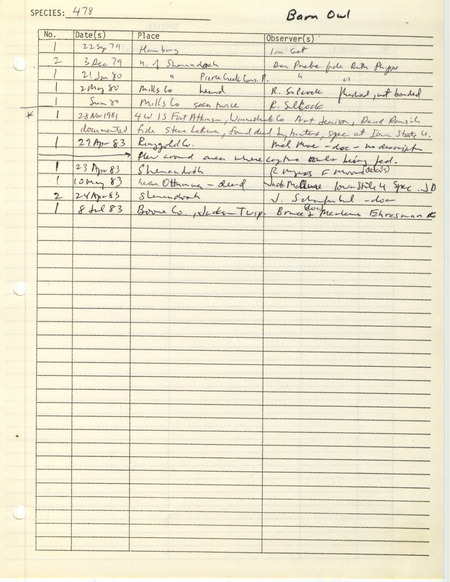 SPECIES: 478 Barn Owl
No. Date(s) Place Observer(s)
1 22 Sep 79 Hamburg
2 3 Dec 79 N. of Shenandoah fide Ruth
1 21 Jan 80 " Pierce Creek Cons. P. " "
1 2 May 80 Mills Co heard R. Silcock not banded
1 Sum 80 Mills Co seen twice R. Silcock
* 1 28 Nov 1981 4 W 1 S Fort Atkinson, Winneshiek Co
documented fide found dead by hunters, spec at Iowa State U.
1 29 Apr 83 Ringgold Co. Mel More - doc - no descript
→ flew around area where captive owls being fed.
1 23 Apr 83 Shenandoah R Myers F Moore (details)
1 10 May 83 near Ottumwa - dead Iowa State U Spec. JD
2 24 Apr 83 Shenandoah J. - doc
1 8 Jul 83 Boone Co., Jackson Twsp. Bruce & Marlene Ehresman doc